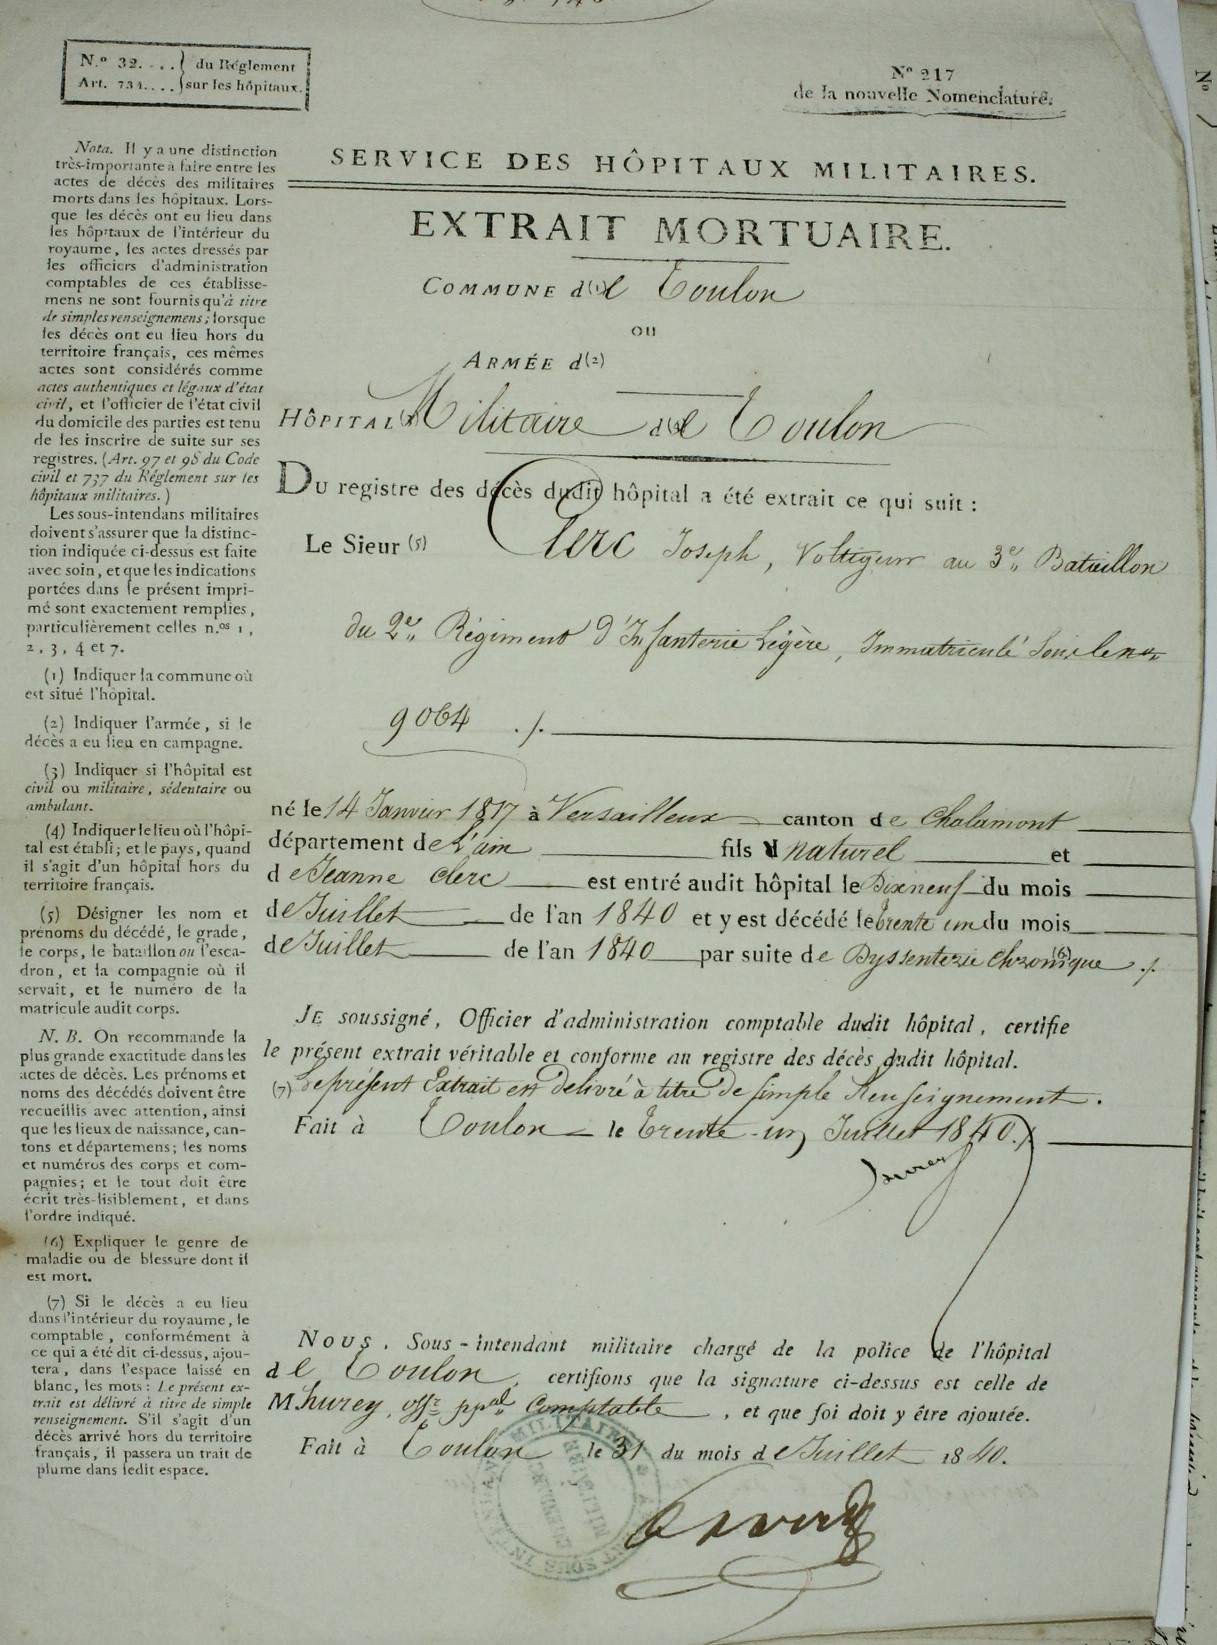 N.º 32. . . . } du Réglement
Art. 731. . . . } sur les hôpitaux.
Nº 217
de la nouvelle Nomenclature.
Nota. Il y a une distinction
très-importante à faire entre les
actes de décès des militaires
morts dans les hôpitaux. Lors-
que les décès ont eu lieu dans
les hôpitaux de l'intérieur du
royaume, les actes dressés par
les officiers d'administration
comptables de ces établisse-
mens ne sont fournis qu'à titre
de simples renseignemens ; lorsque
les décès ont eu lieu hors du
territoire français, ces mêmes
actes sont considérés comme
actes authentiques et légaux d'état
civil, et l'officier de l'état civil
du domicile des parties est tenu
de les inscrire de suite sur ses
registres. (Art. 97 et 98 du Code
civil et 737 du Réglement sur les
hôpitaux militaires.)
Les sous-intendans militaires
doivent s'assurer que la distinc-
tion indiquée ci-dessus est faite
avec soin, et que les indications
portées dans le présent impri-
mé sont exactement remplies,
particulièrement celles n.os 1,
2, 3, 4 et 7.
(1) Indiquer la commune où
est situé l'hôpital.
(2) Indiquer l'armée, si le
décès a eu lieu en campagne.
(3) Indiquer si l'hôpital est
civil ou militaire, sédentaire ou
ambulant.
(4) Indiquer le lieu où l'hôpi-
tal est établi ; et le pays, quand
il s'agit d'un hôpital hors du
territoire français.
(5) Désigner les nom et
prénoms du décédé, le grade,
le corps, le bataillon ou l'esca-
dron, et la compagnie où il
servait, et le numéro de la
matricule audit corps.
N. B. On recommande la
plus grande exactitude dans les
actes de décès. Les prénoms et
noms des décédés doivent être
recueillis avec attention, ainsi
que les lieux de naissance, can-
tons et départemens ; les noms
et numéros des corps et com-
pagnies ; et le tout doit être
écrit très-lisiblement, et dans
l'ordre indiqué.
(6) Expliquer le genre de
maladie ou de blessure dont il
est mort.
(7) Si le décès a eu lieu
dans l'intérieur du royaume, le
comptable, conformément à
ce qui a été dit ci-dessus, ajou-
tera, dans l'espace laissé en
blanc, les mots : Le présent ex-
trait est délivré à titre de simple
renseignement. S'il s'agit d'un
décès arrivé hors du territoire
français, il passera un trait de
plume dans ledit espace.
SERVICE DES HÔPITAUX MILITAIRES.
EXTRAIT MORTUAIRE.
COMMUNE d(1)e Toulon
OU
ARMÉE d(2)
HÔPITAL (3) Militaire d(4)e Toulon
DU registre des décès dudit hôpital a été extrait ce qui suit :
Le Sieur (5) Clerc Joseph, Voltigeur au 3e Bataillon
du 2e Régiment d'Infanterie Légère, Immatriculé Sous le no
9064 ./.
né le 14 Janvier 1817 à Versailleux canton de Chalamont
département de L'ain fils naturel et
de Jeanne Clerc est entré audit hôpital le Dixneuf du mois
de Juillet de l'an 1840 et y est décédé le trente un du mois
de Juillet de l'an 1840 par suite de (6) Dyssenterie Chronique ./.
JE soussigné, Officier d'administration comptable dudit hôpital, certifie
le présent extrait véritable et conforme au registre des décès dudit hôpital.
(7) Le présent Extrait est délivré à titre de simple Renseignement.
Fait à Toulon le trente-un Juillet 1840./.
NOUS, Sous-intendant militaire chargé de la police de l'hôpital
de Toulon, certifions que la signature ci-dessus est celle de
M. hurey, offr ppal Comptable, et que foi doit y être ajoutée.
Fait à Toulon le 31 du mois de Juillet 1840.